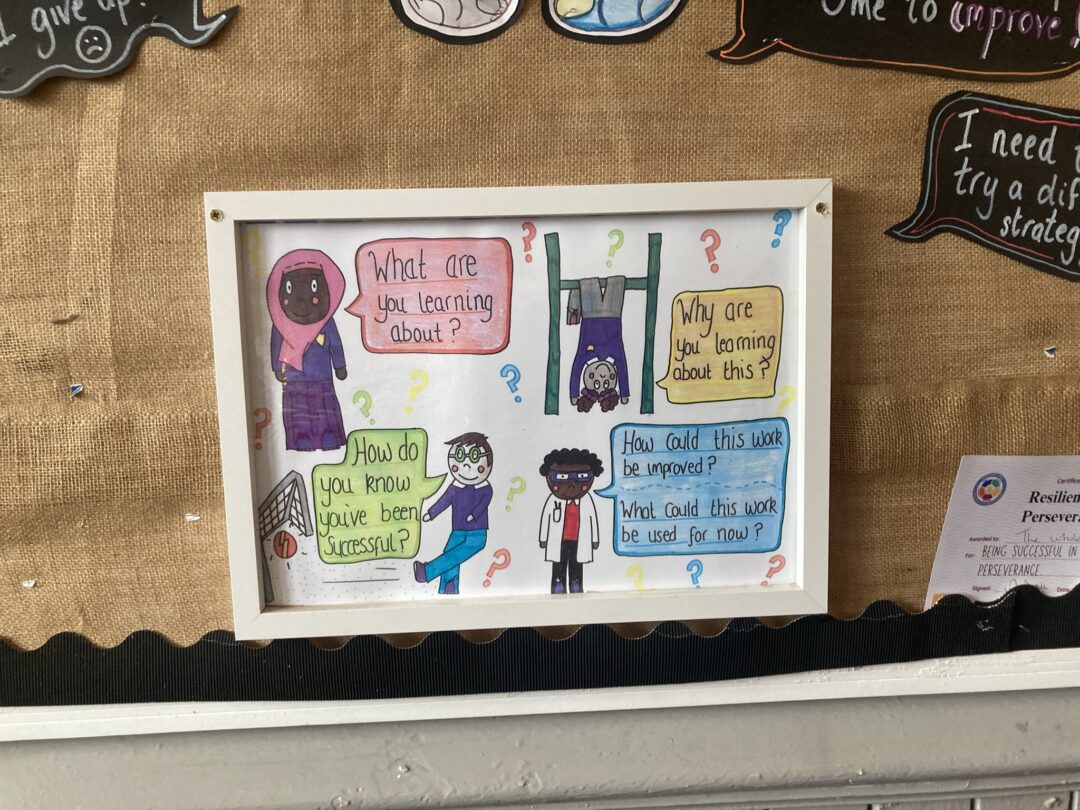 I give up!
me to improve!
I need
try a
What are
you learning
about?
Why are
you learning
about this?
How do
you know
you've been
successful?
How could this work
be improved?
What could this work
be used for now?
Awarded to: The
For: BEING SUCCESSFUL IN
PERSEVERANCE.
Signed: